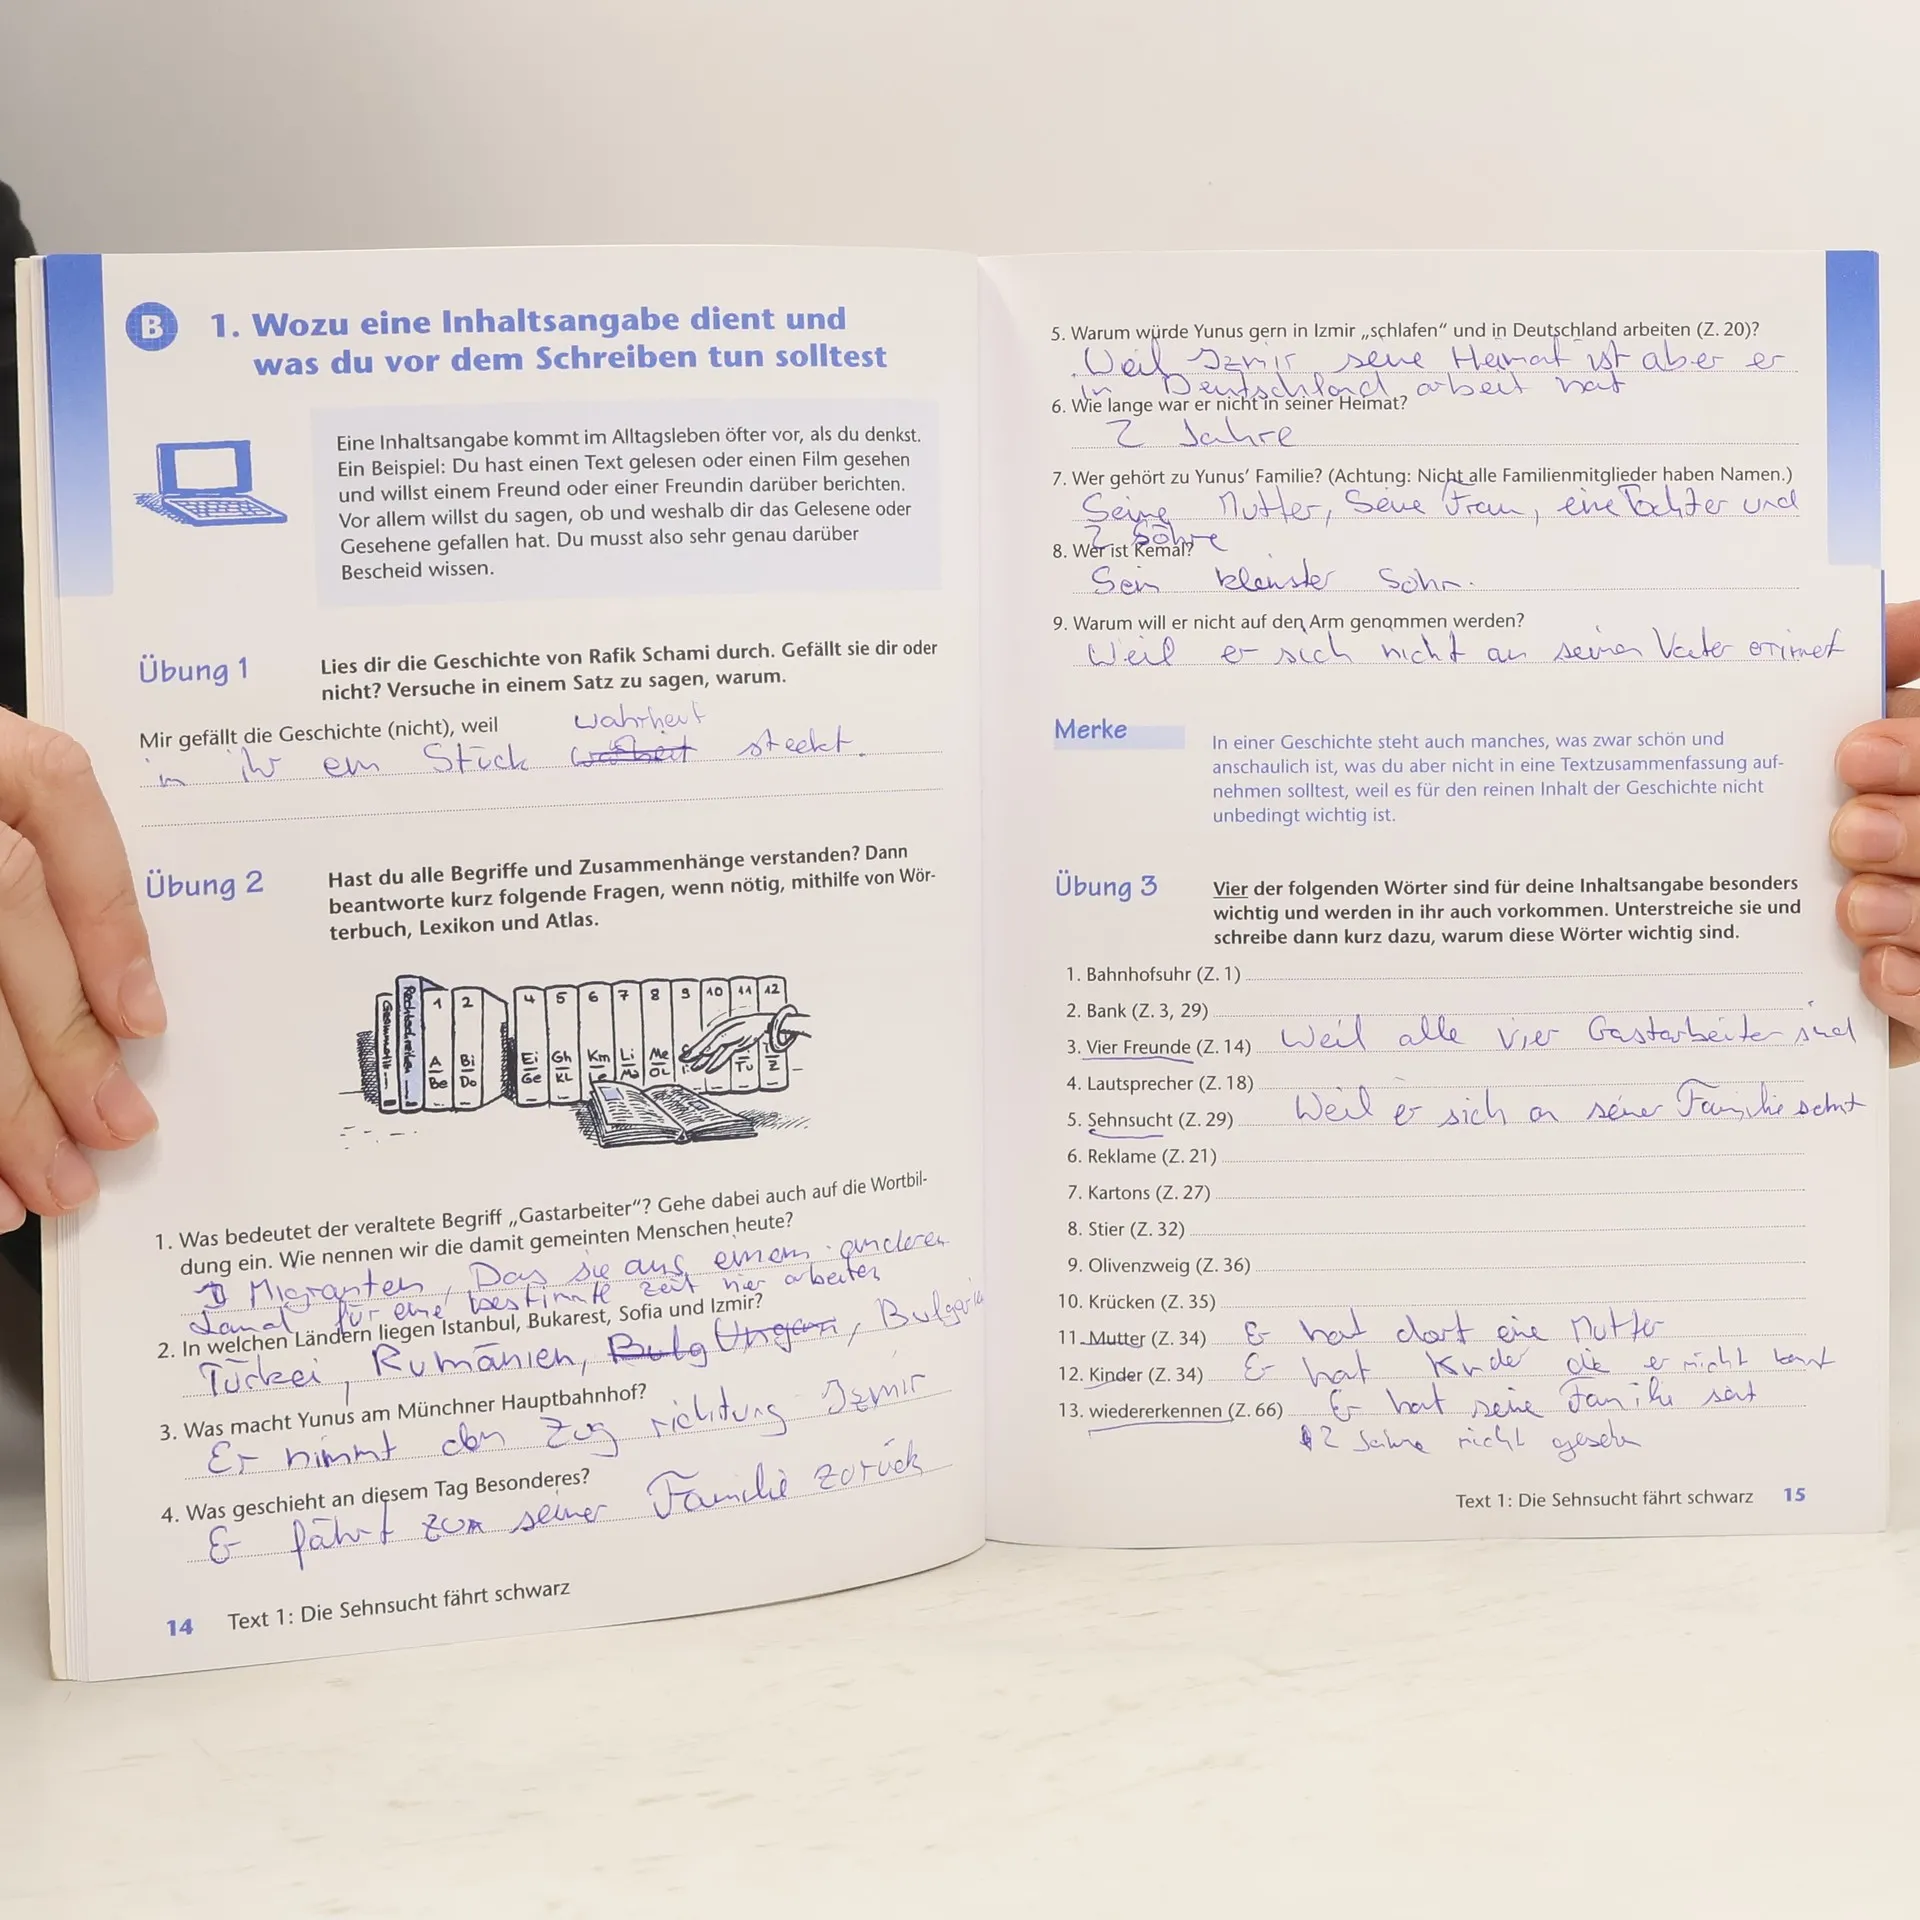 B
1. Wozu eine Inhaltsangabe dient und
was du vor dem Schreiben tun solltest
Eine Inhaltsangabe kommt im Alltagsleben öfter vor, als du denkst.
Ein Beispiel: Du hast einen Text gelesen oder einen Film gesehen
und willst einem Freund oder einer Freundin darüber berichten.
Vor allem willst du sagen, ob und weshalb dir das Gelesene oder
Gesehene gefallen hat. Du musst also sehr genau darüber
Bescheid wissen.
Übung 1
Lies dir die Geschichte von Rafik Schami durch. Gefällt sie dir oder
nicht? Versuche in einem Satz zu sagen, warum.
Mir gefällt die Geschichte (nicht), weil
wahrheit
in ihr ein Stück steckt.
Übung 2
Hast du alle Begriffe und Zusammenhänge verstanden? Dann
beantworte kurz folgende Fragen, wenn nötig, mithilfe von Wör-
terbuch, Lexikon und Atlas.
Grammatik Rechtschreiben 1 2 4 5 6 7 8 9 10 11 12
A Be Bi Do Ei Ge Gh KL Km Le Li Me OL Tu Z
1. Was bedeutet der veraltete Begriff „Gastarbeiter“? Gehe dabei auch auf die Wortbil-
dung ein. Wie nennen wir die damit gemeinten Menschen heute?
Migranten, Das sie aus einem anderen
Land für eine bestimmte zeit hier arbeiten
2. In welchen Ländern liegen Istanbul, Bukarest, Sofia und Izmir?
Türkei, Rumänien, Bulg Ungarn, Bulgaria
3. Was macht Yunus am Münchner Hauptbahnhof?
Er nimmt den Zug richtung Izmir
4. Was geschieht an diesem Tag Besonderes?
Er fährt zu seiner Familie zurück
14 Text 1: Die Sehnsucht fährt schwarz
5. Warum würde Yunus gern in Izmir „schlafen“ und in Deutschland arbeiten (Z. 20)?
Weil Izmir seine Heimat ist aber er
in Deutschland arbeit hat
6. Wie lange war er nicht in seiner Heimat?
2 Jahre
7. Wer gehört zu Yunus’ Familie? (Achtung: Nicht alle Familienmitglieder haben Namen.)
Seine Mutter, Seine Frau, eine Tochter und
2 Söhne
8. Wer ist Kemal?
Sein kleinster Sohn.
9. Warum will er nicht auf den Arm genommen werden?
Weil er sich nicht an seinen Vater erinnert
Merke
In einer Geschichte steht auch manches, was zwar schön und
anschaulich ist, was du aber nicht in eine Textzusammenfassung auf-
nehmen solltest, weil es für den reinen Inhalt der Geschichte nicht
unbedingt wichtig ist.
Übung 3
Vier der folgenden Wörter sind für deine Inhaltsangabe besonders
wichtig und werden in ihr auch vorkommen. Unterstreiche sie und
schreibe dann kurz dazu, warum diese Wörter wichtig sind.
1. Bahnhofsuhr (Z. 1)
2. Bank (Z. 3, 29)
3. Vier Freunde (Z. 14) Weil alle vier Gastarbeiter sind
4. Lautsprecher (Z. 18)
5. Sehnsucht (Z. 29) Weil er sich an seiner Familie sehnt
6. Reklame (Z. 21)
7. Kartons (Z. 27)
8. Stier (Z. 32)
9. Olivenzweig (Z. 36)
10. Krücken (Z. 35)
11. Mutter (Z. 34) Er hat dort eine Mutter
12. Kinder (Z. 34) Er hat Kinder die er nicht kennt
13. wiedererkennen (Z. 66) Er hat seine Familie seit
2 Jahre nicht gesehen
Text 1: Die Sehnsucht fährt schwarz 15